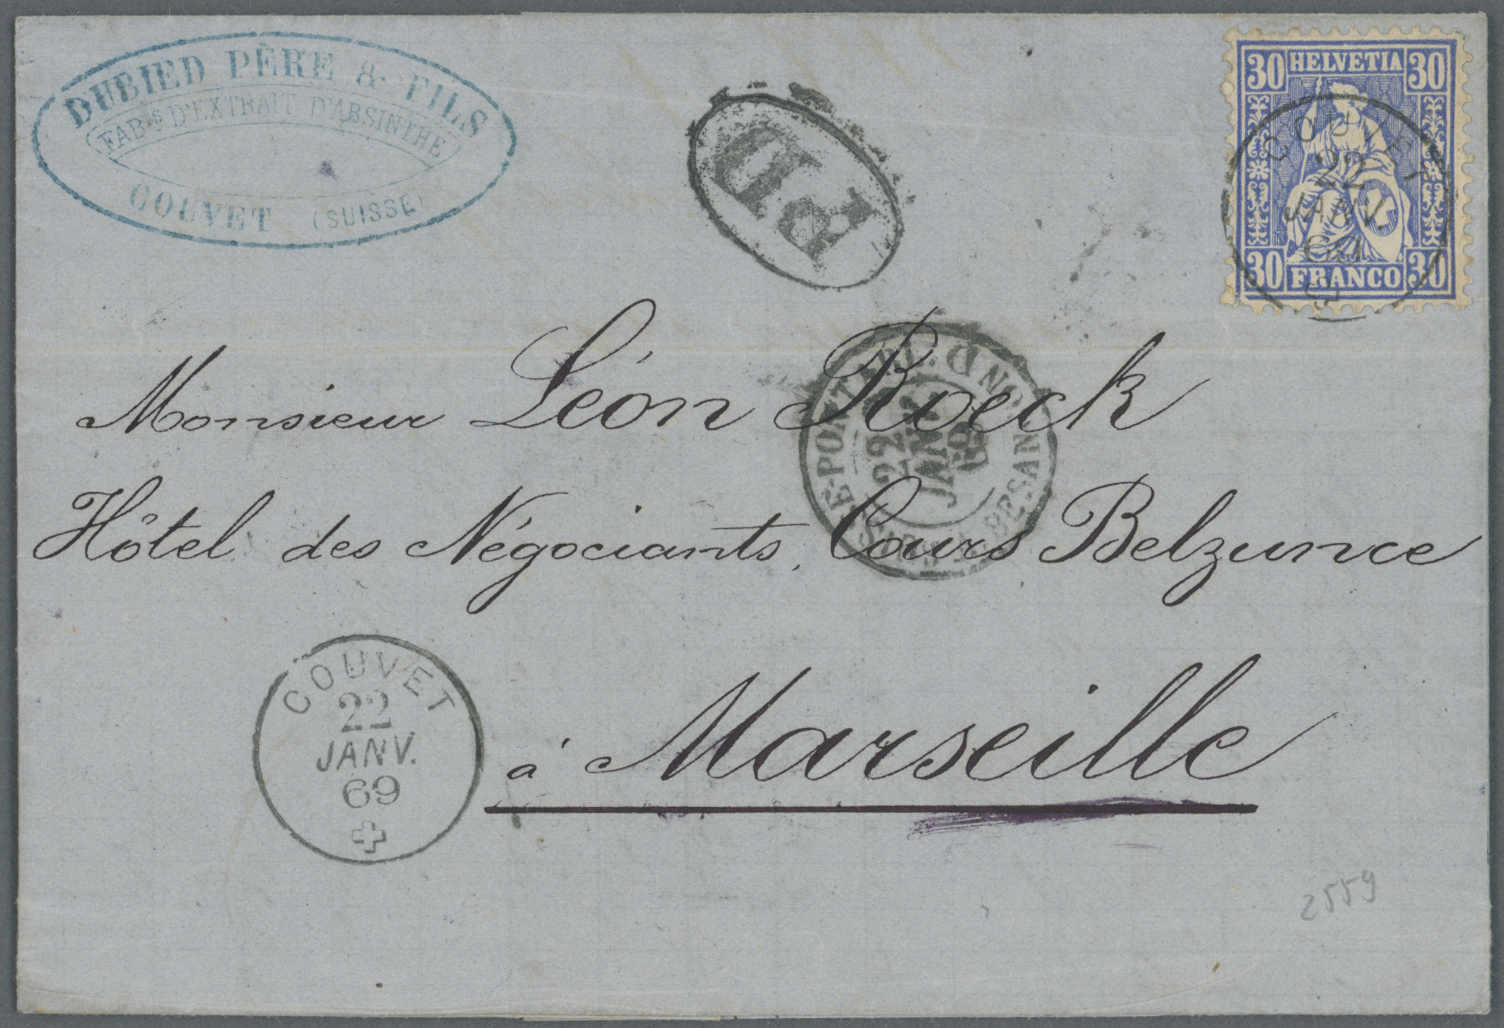 DUBIED PÈRE & FILS
FAB.ts D'EXTRAIT D'ABSINTHE
COUVET (SUISSE)
P.D.
30 HELVETIA 30
30 FRANCO 30
COUVET
22
JANV
69
Monsieur Léon Roeck
Hôtel des Négociants, Cours Belzunce
à Marseille
22
JANV.
69
COUVET
22
JANV.
69
2559